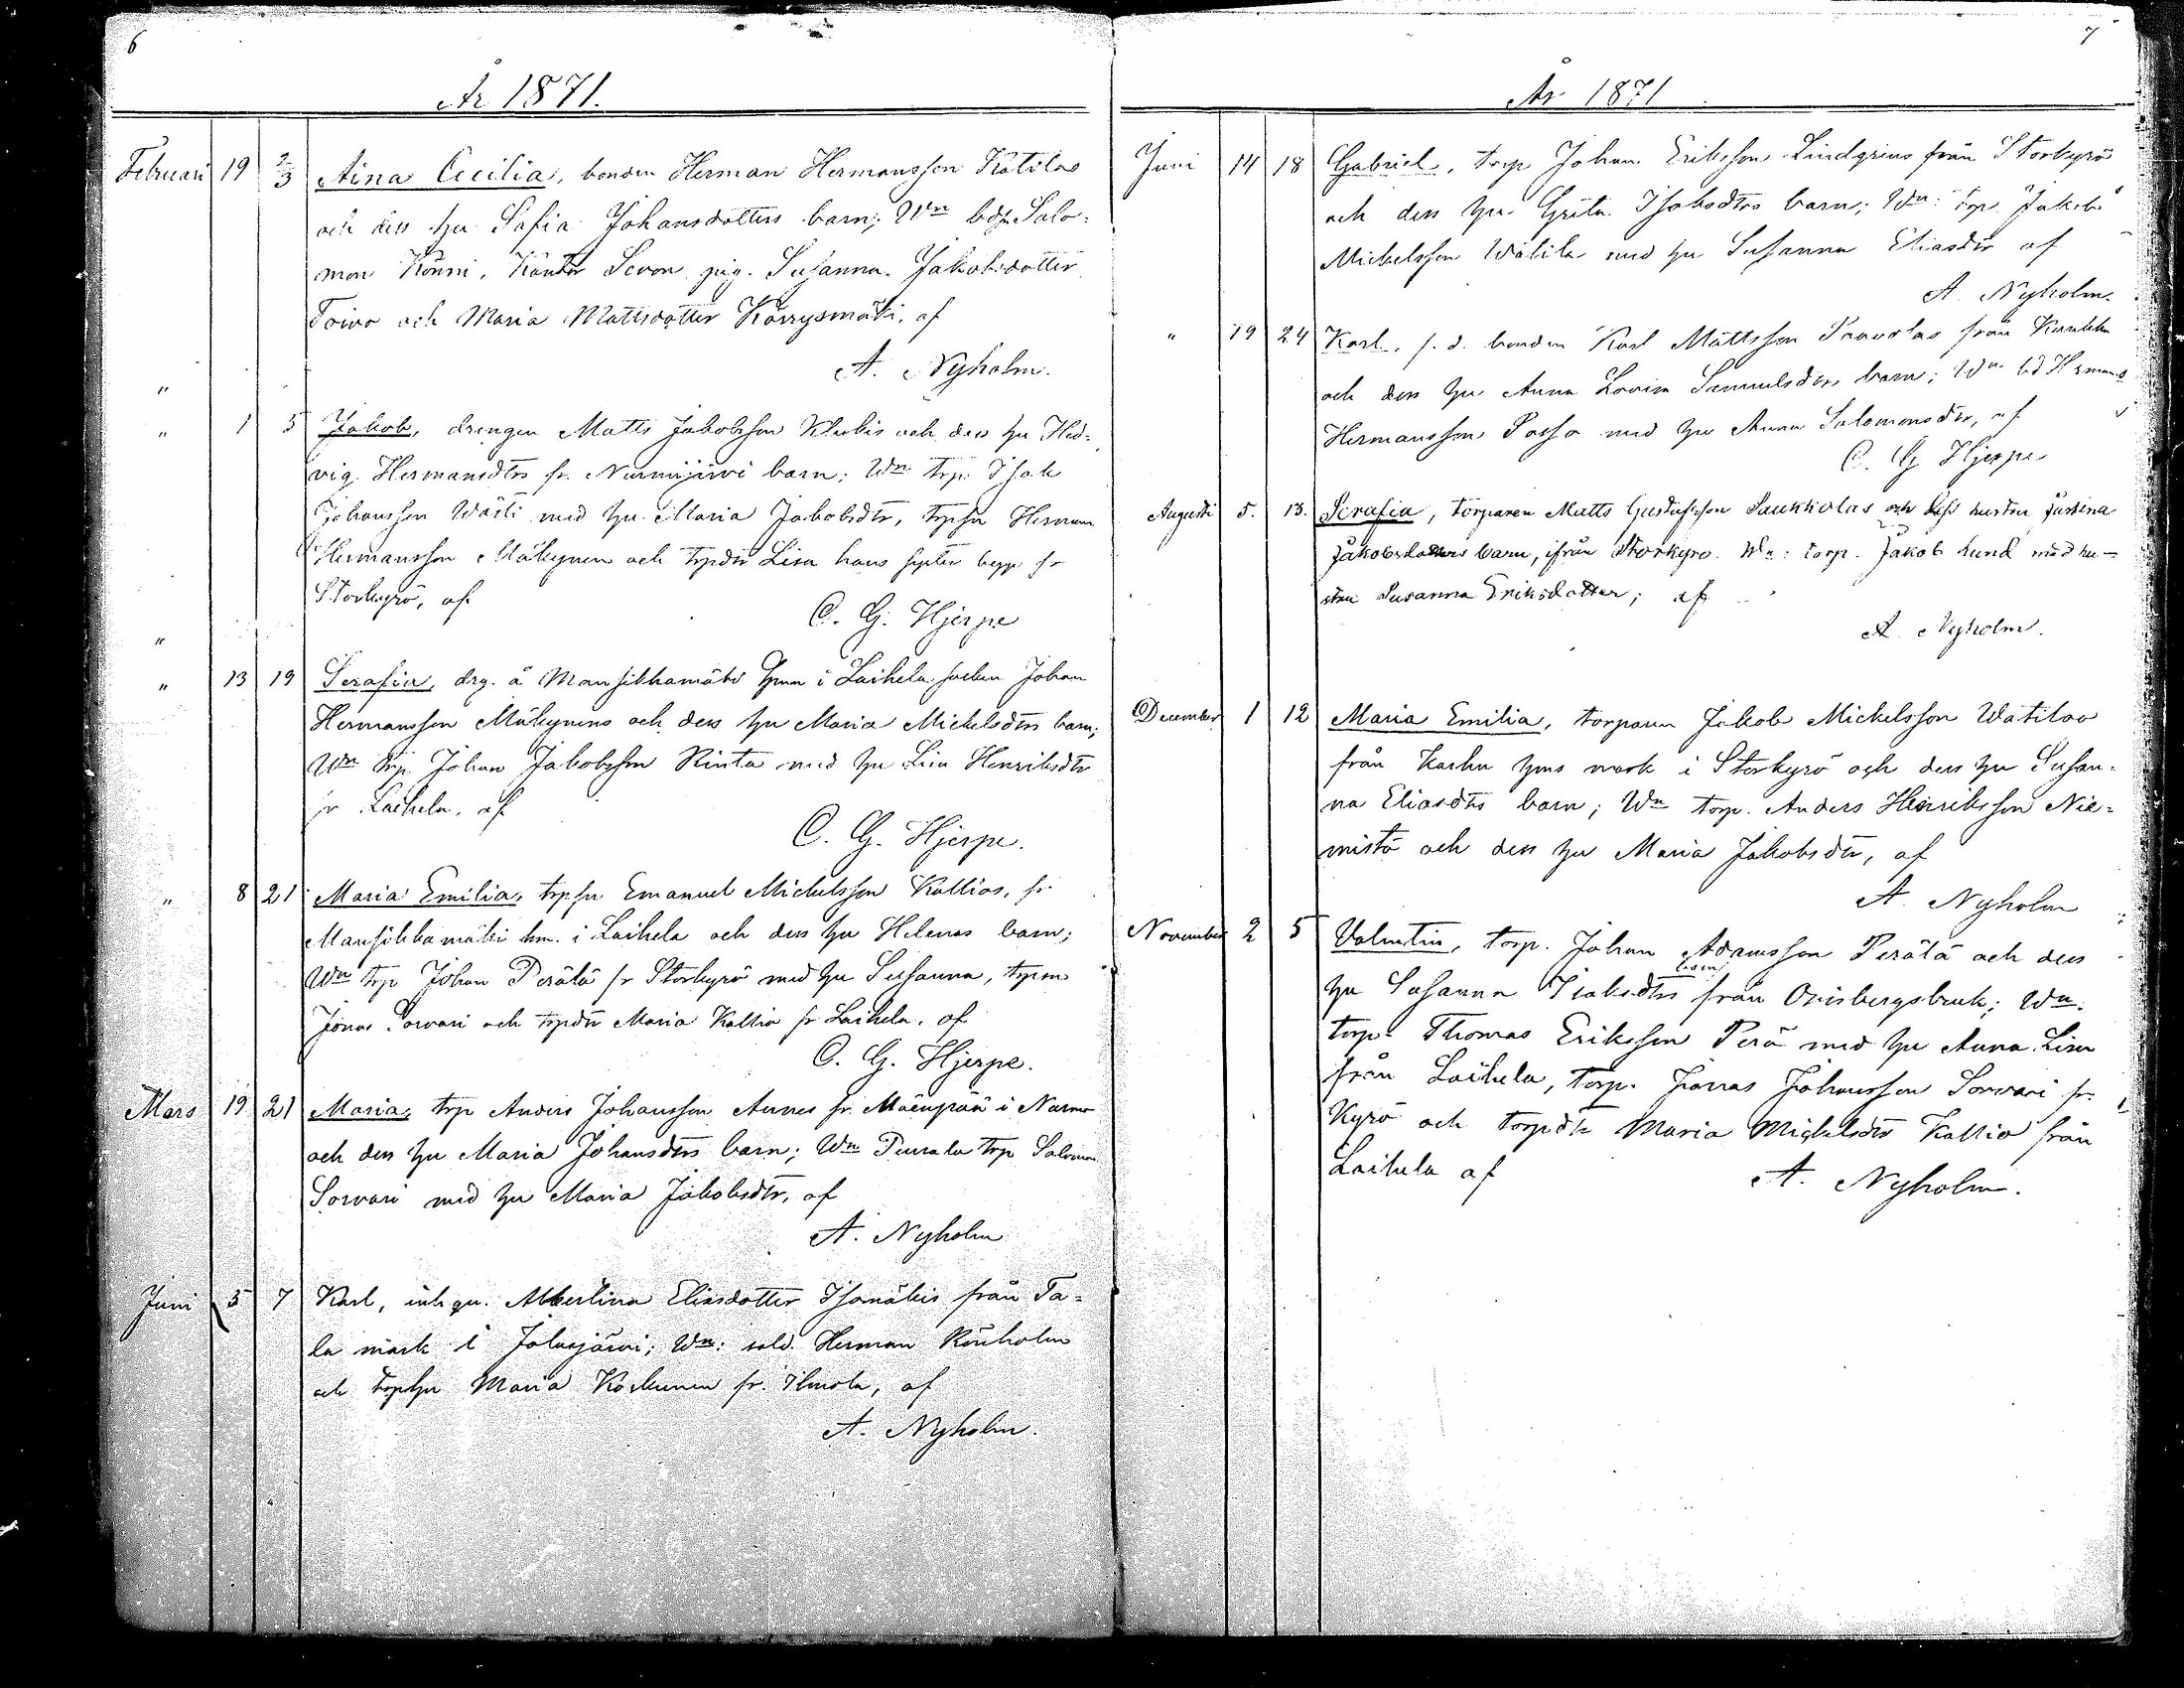 6
År 1871.
Februari 19 2/3 Aina Cecilia, bonden Herman Hermansson Katilas
och dess hu Sofia Johansdotters barn; Wn bdsn Salo-
mon Könni, Kantor Sevon, pig. Susanna Jakobsdotter
Toivo och Maria Mattsdotter Körrysmäki, af
A. Nyholm.
"
" 1 5 Jakob, drengen Matts Jakobsson Klubis och dess hu Hed-
vig Hermansdtrs fr. Nurmijärvi barn; Wn trp. Isak
Johansson Wästi med hu Maria Jakobsdtr, trpsn Herman
Hermansson Mäkynen och trpdtr Lisa hans syster begge fr
Storkyrö, af
C. G. Hjerpe
"
" 13 19 Serafia, drg. å Mansikkamäki hmn i Laihela socken Johan
Hermansson Mäkynens och dess hu Maria Mickelsdtrs barn;
Wn trp. Johan Jakobsson Rinta med hu Lisa Henriksdtr
fr Laihela, af
C. G. Hjerpe.
" 8 21 Maria Emilia, trpsn Emanuel Mickelsson Kallios, fr.
Mansikkamäki hm. i Laihela och dess hu Helenas barn;
Wn trp Johan Perälä fr Storkyrö med hu Susanna, trpm
Jonas Sorvari och trpdtr Maria Kallio fr Laihela, af
C. G. Hjerpe.
Mars 19 21 Maria, trp Anders Johansson Aunes fr. Mäenpää i Nurmo
och dess hu Maria Johansdtrs barn; Wn Peurala trp Salomon
Sorvari med hu Maria Jakobsdtr, af
A. Nyholm
Juni 5 7 Karl, inh qu. Albertina Eliasdotter Isomäkis från Ta-
la mark i Jalasjärvi; Wn: sold. Herman Rönholm
och trphu Maria Koskunen fr. Ilmola, af
A. Nyholm.
7
År 1871
Juni 14 18 Gabriel, trp Johan Eriksson Lindgrens från Storkyrö
och dess hu Greta Isaksdtrs barn; Wn: trp. Jakob
Mickelsson Wätilä med hu Susanna Eliasdtr af
A. Nyholm.
" 19 24 Karl, f. d. bonden Karl Mattsson Paavolas från
och dess hu Anna Lovisa Samuelsdtrs barn; Wn bd Herman
Hermansson Passo med hu Anna Salomonsdtr, af
C. G Hjerpe
Augusti 5. 13. Serafia, torparen Matts Gustafsson Saukkolas och dess hustru Justina
Jakobsdotters barn, ifrån Storkyro. Wn: torp. Jakob Lund med hu-
stru Susanna Eriksdotter; af
A. Nyholm.
December 1 12 Maria Emilia, torparen Jakob Mickelsson Wätilas
från Karhu hms mark i Storkyrö och dess hu Susan-
na Eliasdtrs barn; Wn torp. Anders Henriksson Nie-
mistö och dess hu Maria Jakobsdtr, af
A. Nyholm
November 2 5 Valentin, torp. Johan Adamsson Perälä och dess
hu Susanna Isaksdtrs barn från Orisbergsbruk; Wn.
torp. Thomas Eriksson Perä med hu Anna Lisa
från Laihela, torp. Jonas Johansson Sorvari fr.
Kyrö och torpdtr Maria Mickelsdtr Kallio från
Laihela af
A. Nyholm.